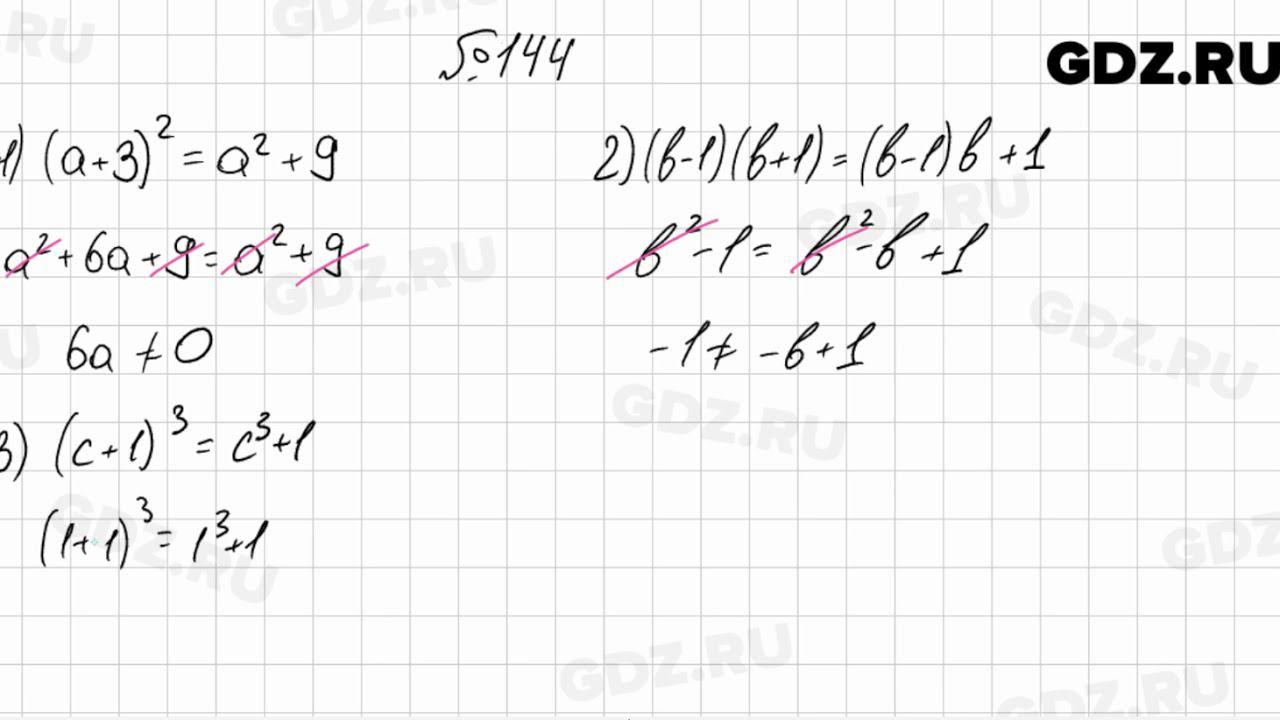 №144
GDZ.RU
1) (a+3)² = a² + 9
a² + 6a + 9 = a² + 9
6a ≠ 0
2) (b-1)(b+1) = (b-1)b + 1
b² - 1 = b² - b + 1
-1 ≠ -b + 1
3) (c+1)³ = c³ + 1
(1+1)³ = 1³ + 1